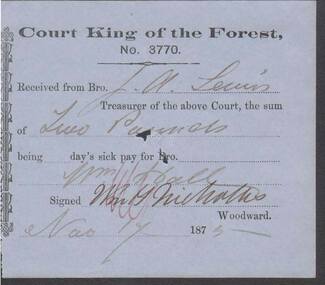 Court King of the Forest,
No. 3770.
Received from Bro. J. A. Lewis
Treasurer of the above Court, the sum
of Two Pounds
being day's sick pay for Bro.
Wm Hall
Signed Wm G Nicholas
Woodward.
Nov 17 1875